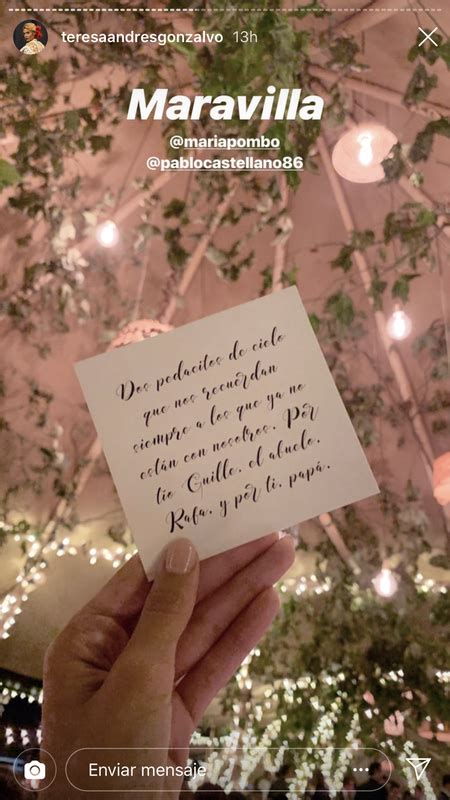 teresaandresgonzalvo 13h
Maravilla
@mariapombo
@pablocastellano86
Dos pedacitos de cielo
que nos recuerdan
siempre a los que ya no
están con nosotros. Por
tío Guille, el abuelo,
Rafa, y por ti, papá.
Enviar mensaje